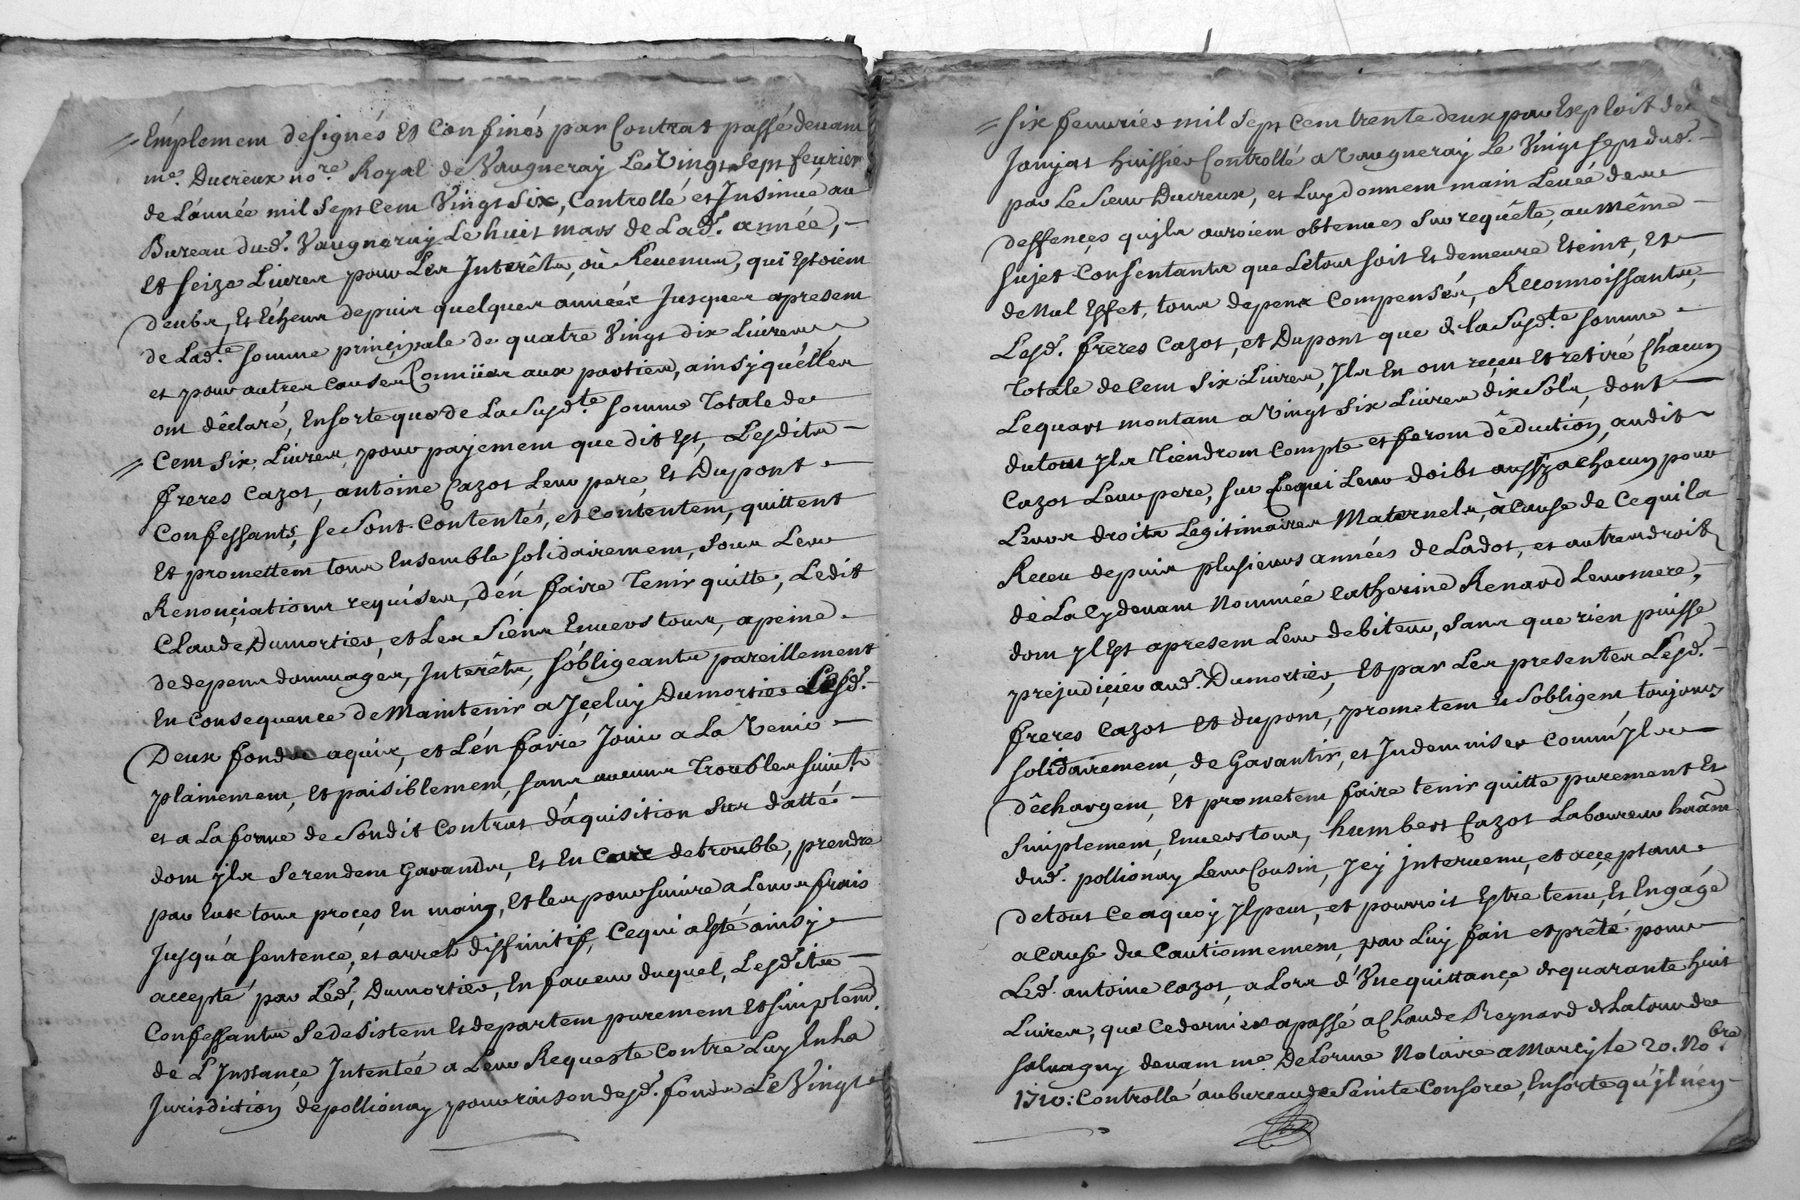 Emplement designés et confinés par Contrat passé devant
me. Ducreux nore. Royal de Vaugneray Le Vingt sept feurier
de L'année mil Sept Cent Vingt Six, Controllé et Insinué au
Bureau dud. Vaugneray Le huit mars de Lad. année,
et seize Livres pour Les Interêts, où Revenus, qui Estoient
deubs, et Echeus depuis quelques années Jusques apresent
de Ladte. somme principale de quatre Vingt dix Livres
et pour autres causes Connües aux parties, ainsy qu'elles
ont déclaré, Ensorte que de La Susdte. somme Totale de
Cent Six Livres, pour payement que dit Est, Lesdits
freres Cazot, antoine Cazot Leur pere, et Dupont
Confessants, se Sont Contentés, et contentent, quittent
Et promettent tous Ensemble solidairement, sous Leurs
Renonciations requises, d'en faire Tenir quitte, Ledit
Claude Dumortier, et Les Siens Envers tous, a peine
de depens dommages, Interêts, s'obligeants pareillement
En Consequence de Maintenir a Jceluy Dumortier Lesd.
Deux fonds aquis, et L'en faire Jouir a La Tenir
plainement, Et paisiblement, sans aucuns Troubles suivt.
et a La forme de Sondit Contrat d'aquisition Sus datté
dont jls se rendent Garands, et En Cas de trouble, prendre
par Eux tous procès En main, Et les poursuivre a Leurs frais
Jusqu'à sentence, et arrest diffinitif, Ce qui a Esté ainsy
accepté par Led. Dumortier, En faveur duquel, Lesdits
Confessants Se desistent Et departent purement Et simplemt.
de L'Instançe Intentée a Leur Requeste Contre Luy En La
Jurisdiction de pollionay pour raison desd. fonds Le Vingt
six feuvrier mil Sept Cent trente deux par Exploit de
Janjat huissier Controllé a Vaugneray Le Vingt sept dud.
par Le Sieur Ducreux, et Luy donnent main Levée des
deffençes qu'jls auroient obtenues Sur requête, au Même
Sujet Consentants que Letout soit Et demeure Eteint, Et
de Nul Effet, tous depens Compensés, Reconnoissants,
Lesd. freres Cazot, et Dupont que de la Susdte. somme
Totale de Cent Six Livres, Jls En ont reçu Et retiré Chacun
Lequart montant a Vingt Six Livres dix Sols, dont
du tout jls Tiendront Compte et feront déduction, audit
Cazot Leur pere, sur Cequi Leur doibt aussy a chacun pour
Leurs droits Legitimaires Maternels, à Cause de Cequ'il a
Receu depuis plusieurs années de La dot, et autres droits
de La Cydevant Nommée Catherine Renard Leur mere,
dont jl Est apresent Leur debiteur, Sans que rien puisse
prejudicier aud. Dumortier, Et par Les presentes Lesd.
freres Cazot et dupont, prometent et s'obligent toujours
solidairement, de Garantir, et Indemniser comm'jls
déchargent, Et prometent faire tenir quitte purement Et
simplement, Envers tous, humbert Cazot Laboureur habitant
dud. pollionay Leur Cousin, Jcy jntervenu, et acçeptant
de tout Ce aquoy Jl peut, et pourroit Estre tenu, Et Engagé
a Cause du Cautionnement, par Luy fait et prêté pour
Led. antoine Cazot, a Lors d'Une quittançe de quarante huit
Livres, que Cedernier a passé a Claude Reynard de La tour de
salvagny devant me. Delorme Notaire a Marcy le 20. Nobre.
1710: Controllé au bureau de Sainte Consorce, Ensorte qu'jl n'en